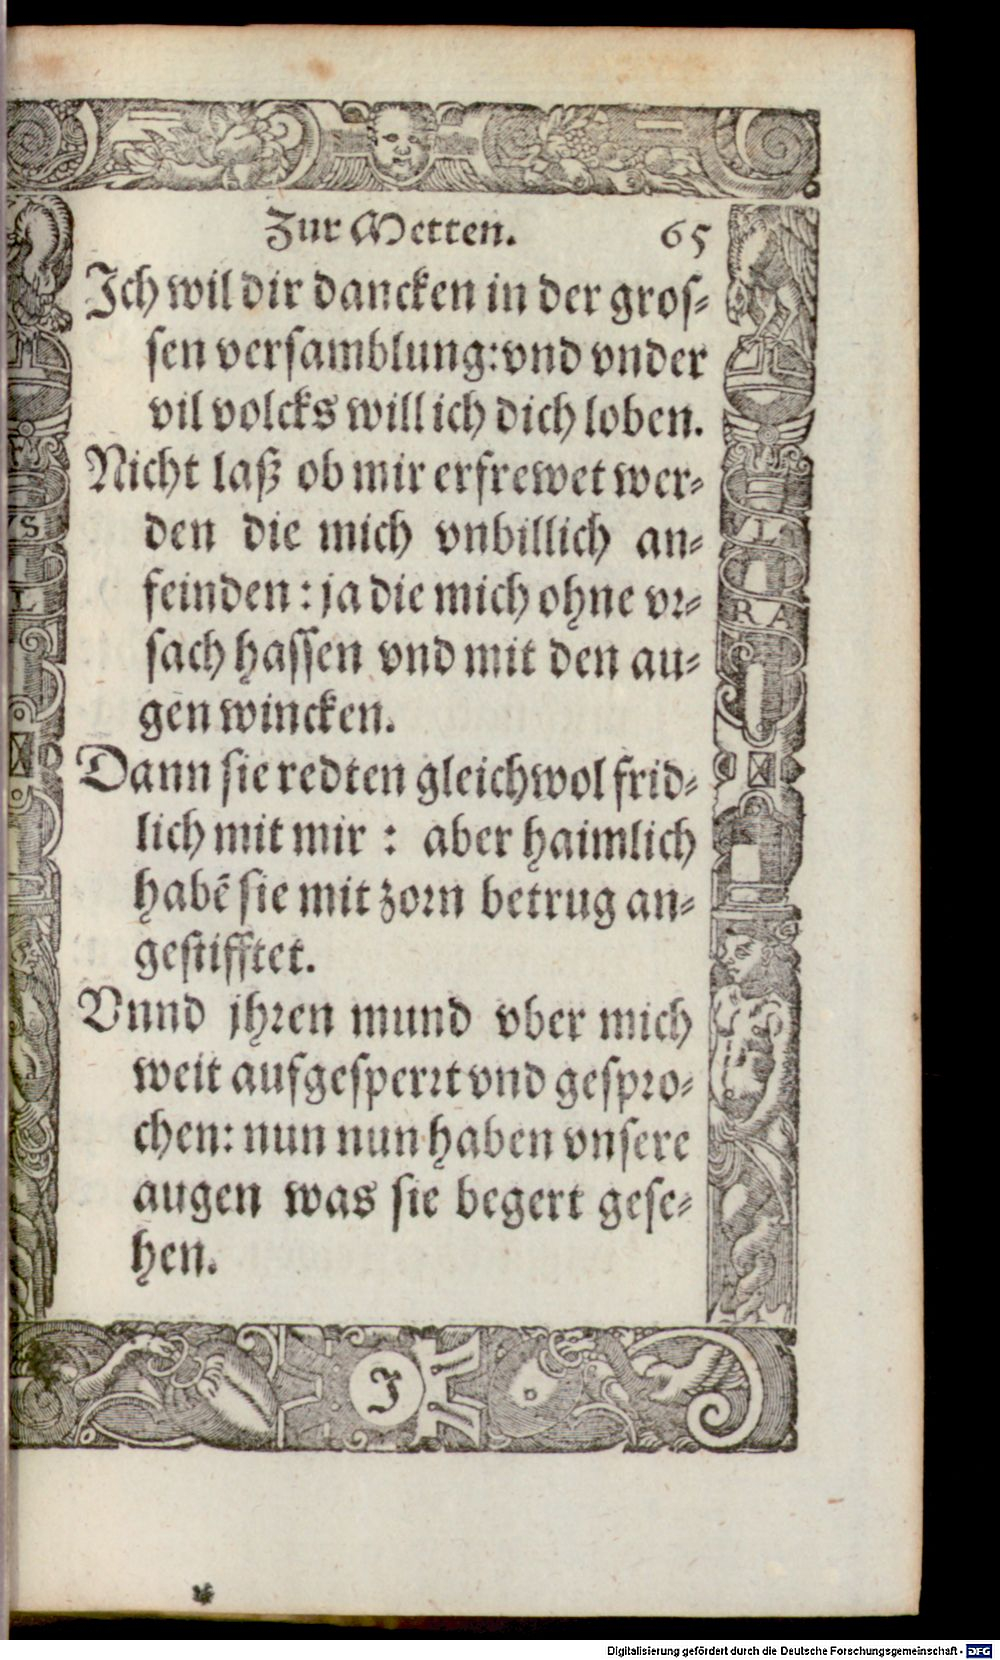 Zur Metten. 65
Ich wil dir dancken in der gros-
sen versamblung: vnd vnder
vil volcks will ich dich loben.
Nicht laß ob mir erfrewet wer-
den die mich vnbillich an-
feinden: ja die mich ohne vr-
sach hassen vnd mit den au-
gen wincken.
Dann sie redten gleichwol frid-
lich mit mir : aber haimlich
habẽ sie mit zorn betrug an-
gestifftet.
Vnnd jhren mund vber mich
weit aufgesperrt vnd gespro-
chen: nun nun haben vnsere
augen was sie begert gese-
hen.
S
L
L
R A
J
Digitalisierung gefördert durch die Deutsche Forschungsgemeinschaft - DFG